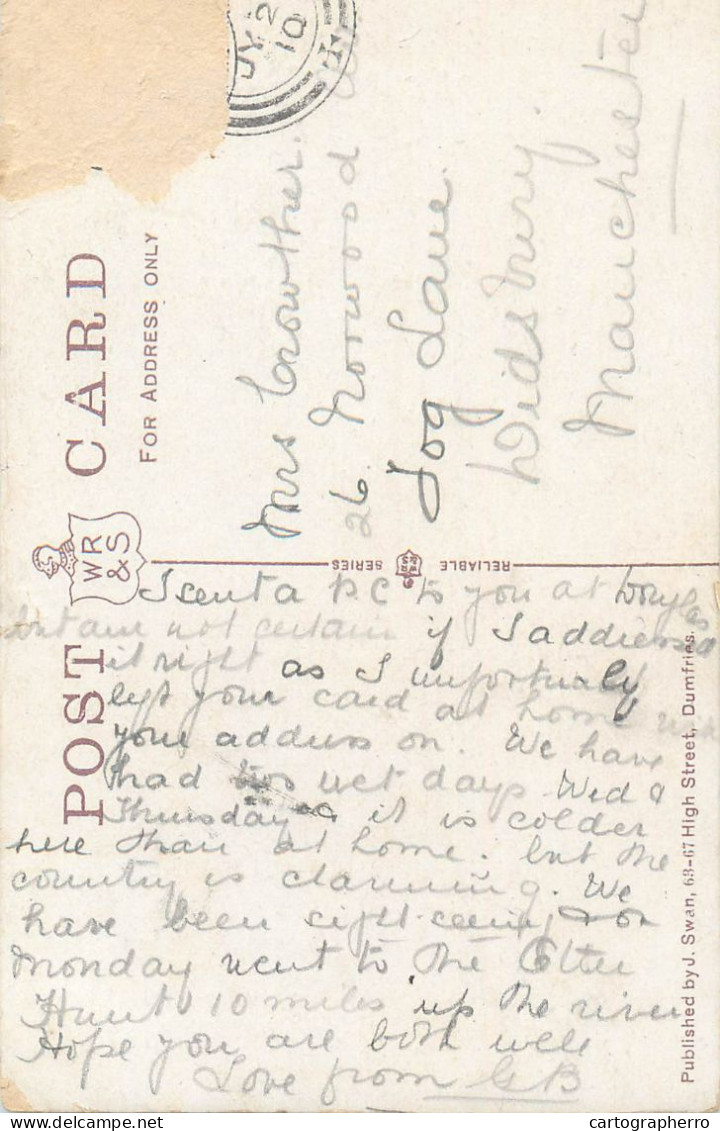 POST CARD
WR
&S
FOR ADDRESS ONLY
JY 2
10
Mrs Crowther.
26 Norwood
Fog Lane
Didsbury
Manchester
RELIABLE SERIES
I sent a P.C to you at Douglas
but am not certain if I addressed
it right as I unfortunaly
left your card at home with
your address on. We have
had two wet days Wed &
Thursday & it is colder
here than at home. but the
country is charming. We
have been sight-seeing & on
Monday went to the Otter
Hunt 10 miles up the river
Hope you are both well
Love from G B
Published by J. Swan, 63-67 High Street, Dumfries.
cartographerro
delcampe.net